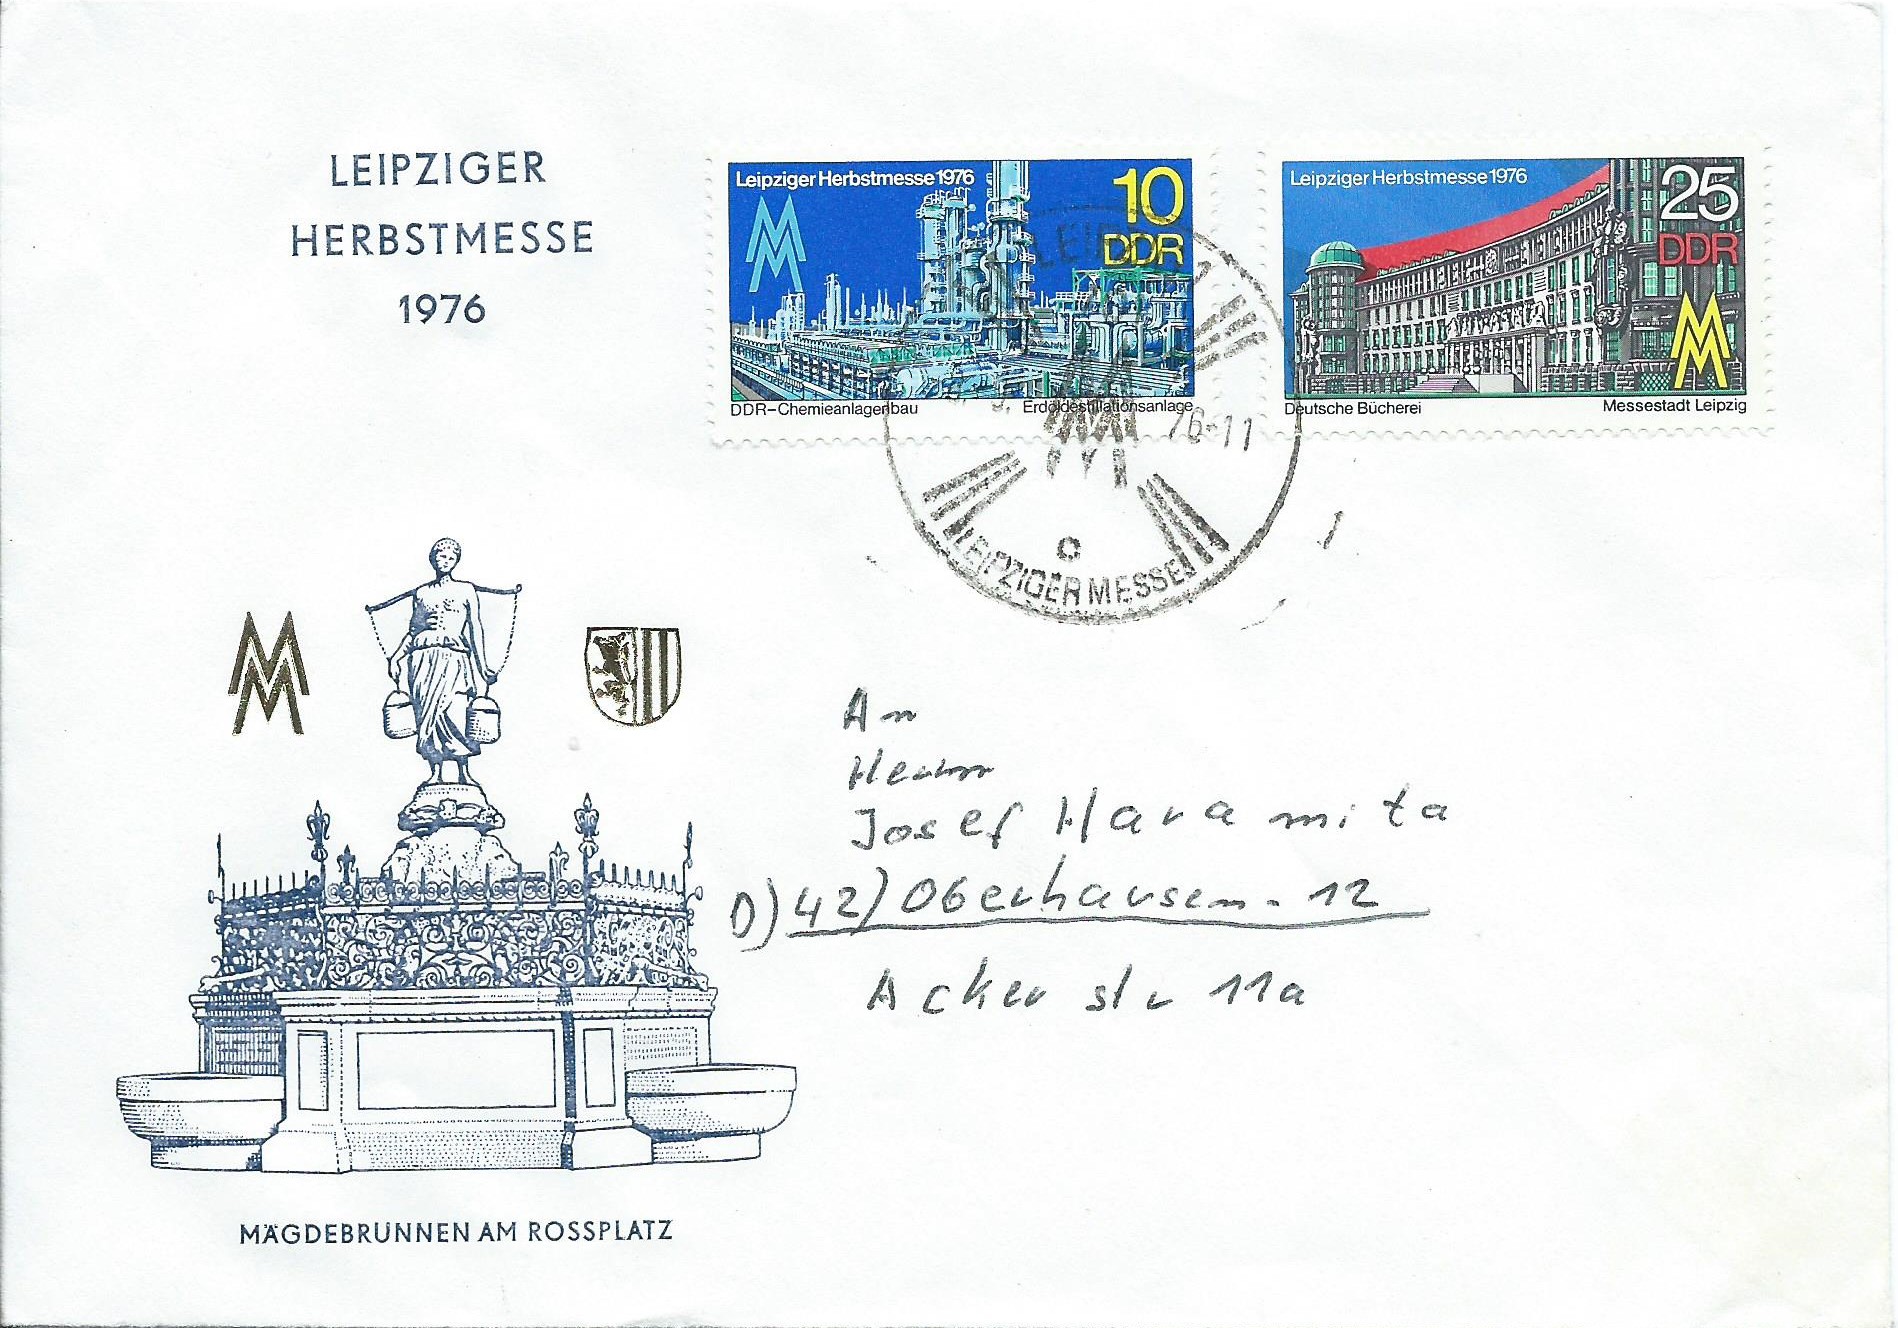 LEIPZIGER
HERBSTMESSE
1976
Leipziger Herbstmesse 1976
10
DDR
DDR-Chemieanlagenbau Erdöldestillationsanlage
Leipziger Herbstmesse 1976
25
DDR
Deutsche Bücherei Messestadt Leipzig
76-11
C
LEIPZIGER MESSE
An
Herrn
Josef Haramita
D) 42) Oberhausen - 12
Ackerstr 11a
MÄGDEBRUNNEN AM ROSSPLATZ